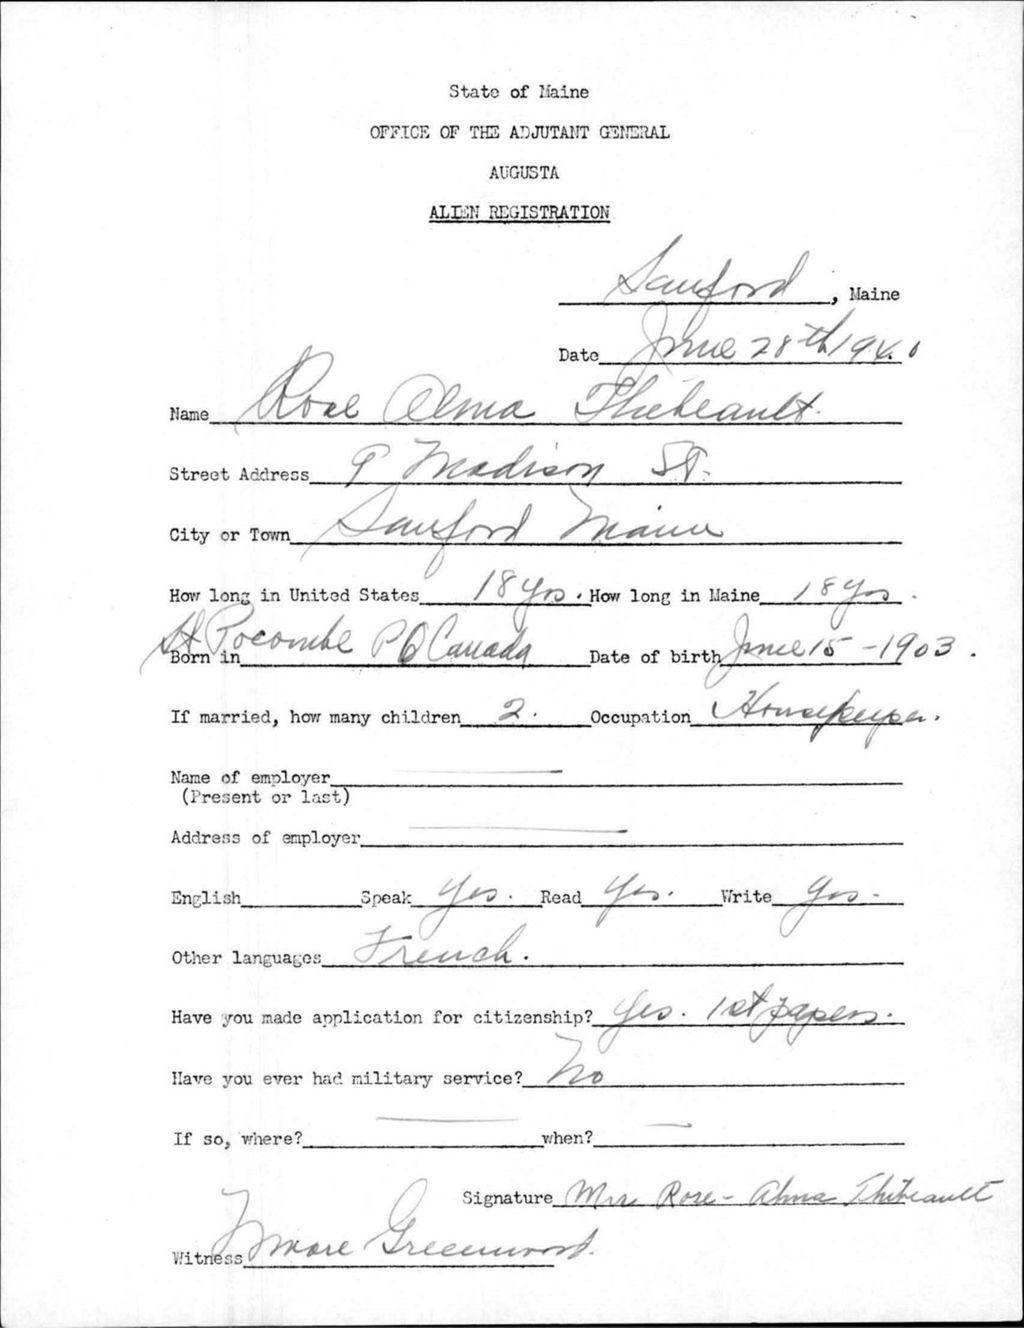 State of Maine
OFFICE OF THE ADJUTANT GENERAL
AUGUSTA
ALIEN REGISTRATION
Sanford, Maine
Date June 28th 1940
Name Rose Alma Thibeault.
Street Address 9 Madison St.
City or Town Sanford Maine
How long in United States 18 yrs. How long in Maine 18 yrs.
Born in St Pocombe PQ Canada Date of birth June 15 - 1903.
If married, how many children 2. Occupation Housekeeper.
Name of employer
(Present or last)
Address of employer
English Speak Yes. Read Yes. Write Yes-
Other languages French.
Have you made application for citizenship? Yes. 1st papers.
Have you ever had military service? No
If so, where? when?
Signature Mrs Rose-Alma Thibeault
Witness Greenwood.